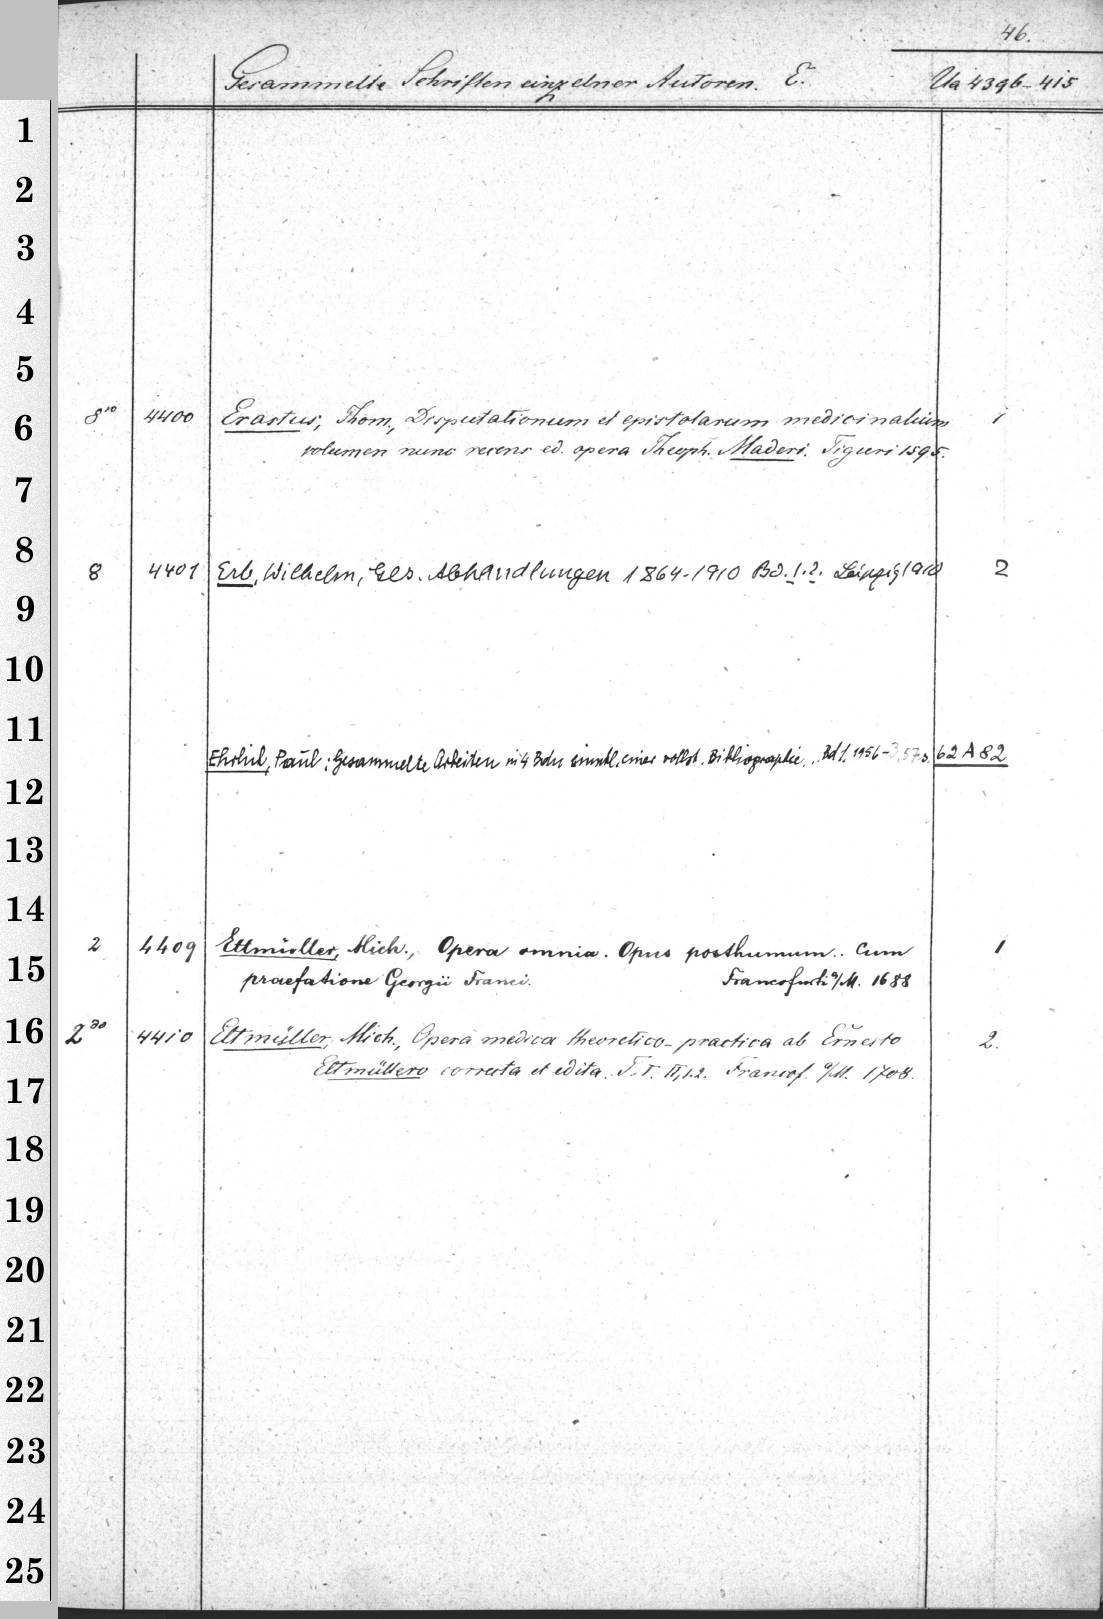 46.
Gesammelte Schriften einzelner Autoren. E. Ua 4396-415
1
2
3
4
5
8vo 4400 Erastus, Thom., Disputationum et epistolarum medicinalium 1
6
volumen nunc recens ed. opera Theoph. Maderi. Tiguri 1595.
7
8
8 4401 Erb, Wilhelm, Ges. Abhandlungen 1864-1910 Bd. 1.2. Leipzig 1910 2
9
10
11
Ehrlich, Paul: Gesammelte Arbeiten in 4 Bdn einschl. einer vollst. Bibliographie. Bd 1. 1956- 62 A 82
12
13
14
2 4409 Ettmüller, Mich., Opera omnia. Opus posthumum.. Cum 1
15
praefatione Georgii Franci. Francofurti a/M. 1688
16
2do 4410 Ettmüller, Mich., Opera medica theoretico-practica ab Ernesto 2.
Ettmüllero correcta et edita. T. I. II,1.2. Francof. a/M. 1708.
17
18
19
20
21
22
23
24
25